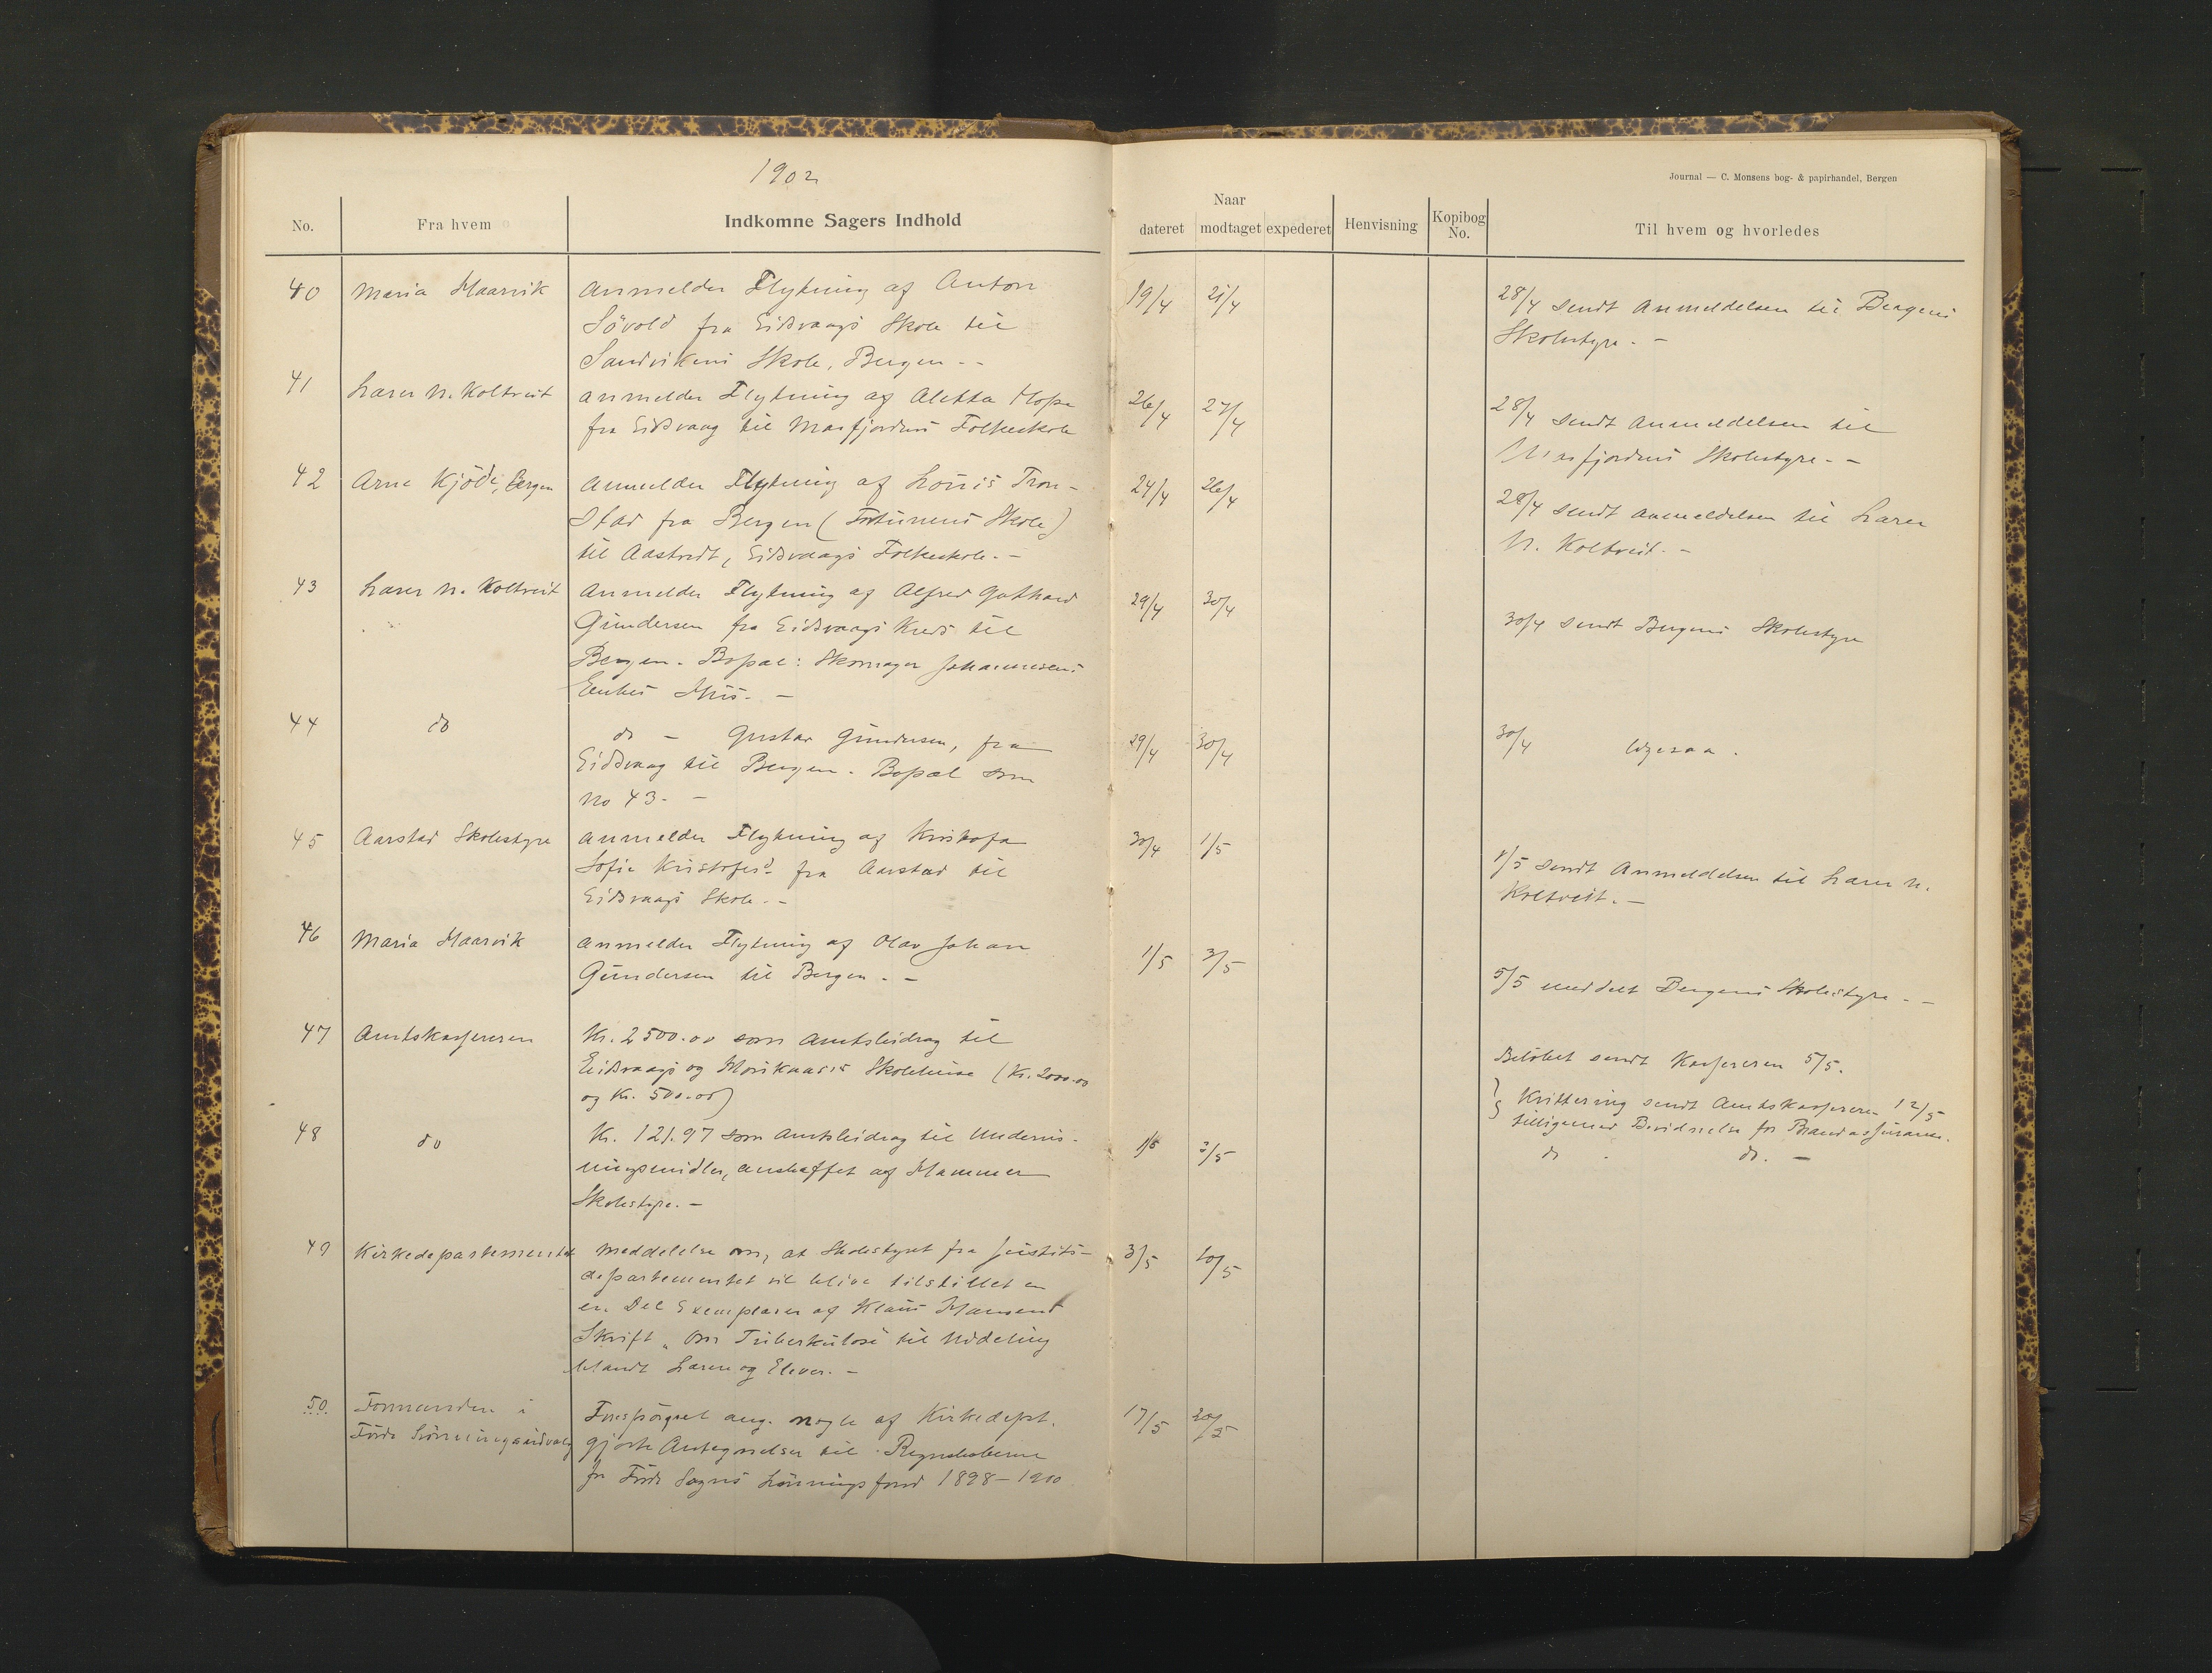 1902
Journal — C. Monsens bog- & papirhandel, Bergen
No. Fra hvem Indkomne Sagers Indhold
Naar
dateret modtaget expederet Henvisning Kopibog No. Til hvem og hvorledes
40 Maria Haarvik Anmelder Flytning af Anton
Sövold fra Eidsvaags Skole til
Sandvikens Skole, Bergen. -
19/4 21/4 28/4 sendt Anmeldelsen til Bergens
Skolestyre. -
41 Lærer N. Koltveit Anmelder Flytning af Aletta Hope
fra Eidsvaag til Masfjordens Folkeskole
26/4 27/4 28/4 sendt Anmeldelsen til
Masfjordens Skolestyre. -
42 Arne Kjöde, Bergen Anmelder Flytning af Louis Tron-
stad fra Bergen (Fortunens Skole)
til Aastvedt, Eidsvaags Folkeskole. -
24/4 26/4 28/4 sendt Anmeldelsen til Lærer
N. Koltveit. -
43 Lærer N. Koltveit Anmelder Flytning af Alfred Gothard
Gundersen fra Eidsvaags Kreds til
Bergen. Bopæl: Skomager Johannesens
Enkes Hus. -
29/4 30/4 30/4 sendt Bergens Skolestyre
44 do do - Gustav Gundersen, fra
Eidsvaag til Bergen. Bopæl som
No 43. -
29/4 30/4 30/4 ligesaa.
45 Aarstad Skolestyre Anmelder Flytning af Kristofa
Sofie Kristofersd. fra Aarstad til
Eidsvaags Skole. -
30/4 1/5 1/5 sendt Anmeldelsen til Lærer N.
Koltveit. -
46 Maria Haarvik Anmelder Flytning af Olav Johan
Gundersen til Bergen. -
1/5 3/5 5/5 meddelt Bergens Skolestyre. -
47 Amtskassereren Kr. 2500.00 som Amtsbidrag til
Eidsvaags og Skolehuse (Kr. 2000.00
og Kr. 500.00)
Belöbet sendt Kassereren 5/5.
Kvittering sendt Amtskassereren 12/5
tilligemed Bevidnelse for Brandassurance.
48 do Kr. 121.97 som Amtsbidrag til Undervis-
ningsmidler, anskaffet af Hammer
Skolestyre. -
1/5 3/5 do . do. -
49 Kirkedepartementet Meddelelse om, at Skolestyret fra Justits-
departementet vil blive tilstillet en
en Del Exemplarer af Klaus Hansens
Skrift „Om Tuberkulose til Uddeling
blandt Lærere og Elever. -
3/5 10/5
50 Formanden i
Förde
Forespörgsel ang. nogle af Kirkedept.
gjorte Antegnelser til Regnskaberne
for Förde Sogns Lönningsfond 1898 - 1900
17/5 20/5